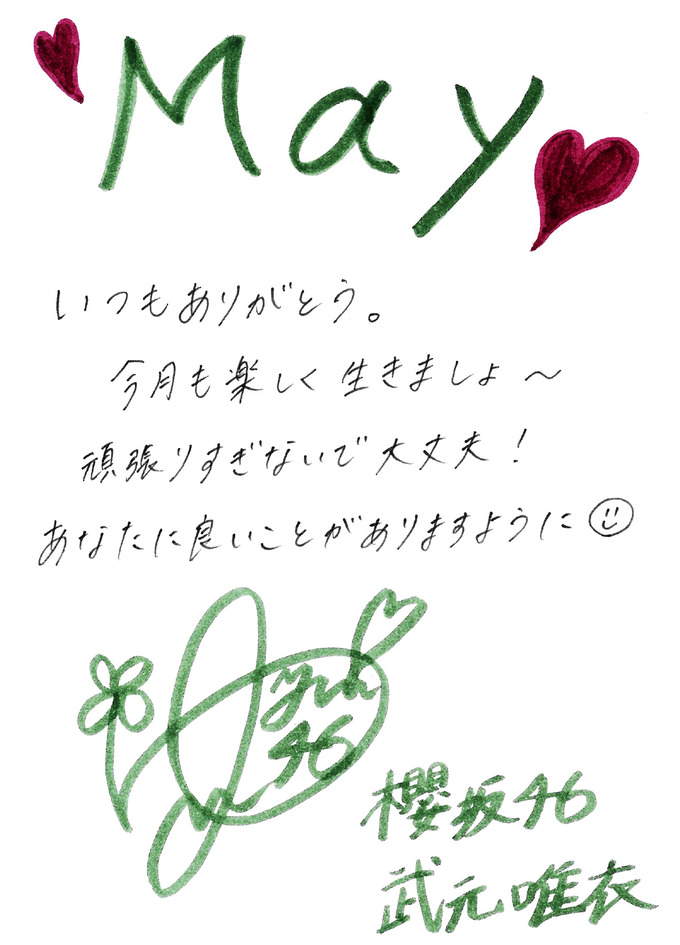 May
いつもありがとう。
今月も楽しく生きましょ〜
頑張りすぎないで大丈夫！
あなたに良いことがありますように☺
Yui
46
櫻坂46
武元唯衣